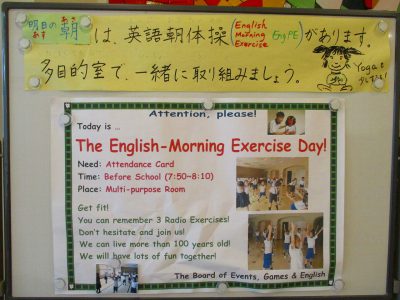 明日の朝は、英語朝体操(English Morning Exercise Eng PE)があります。
あす あさ
多目的室で、一緒に取り組みましょう。
Yogaも
Attention, please!
Today is ...
The English-Morning Exercise Day!
Need: Attendance Card
Time: Before School (7:50~8:10)
Place: Multi-purpose Room
Get fit!
You can remember 3 Radio Exercises!
Don't hesitate and join us!
We can live more than 100 years old!
We will have lots of fun together!
The Board of Events, Games & English